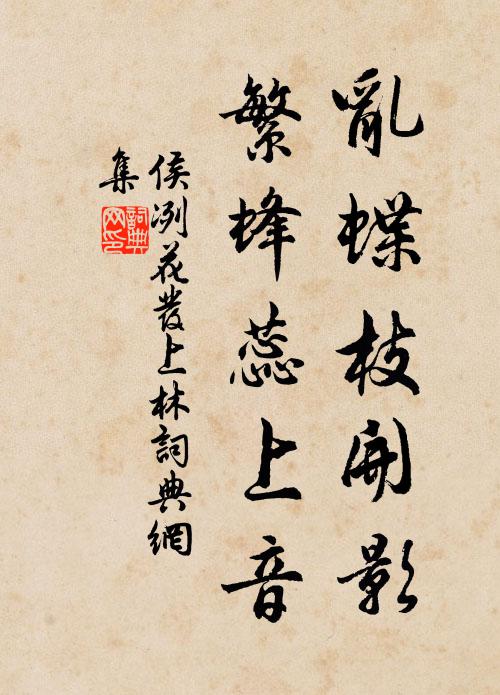 亂蝶枝開影
繁蜂蕊上音
侯冽花發上林詞典網
集
詞典網印